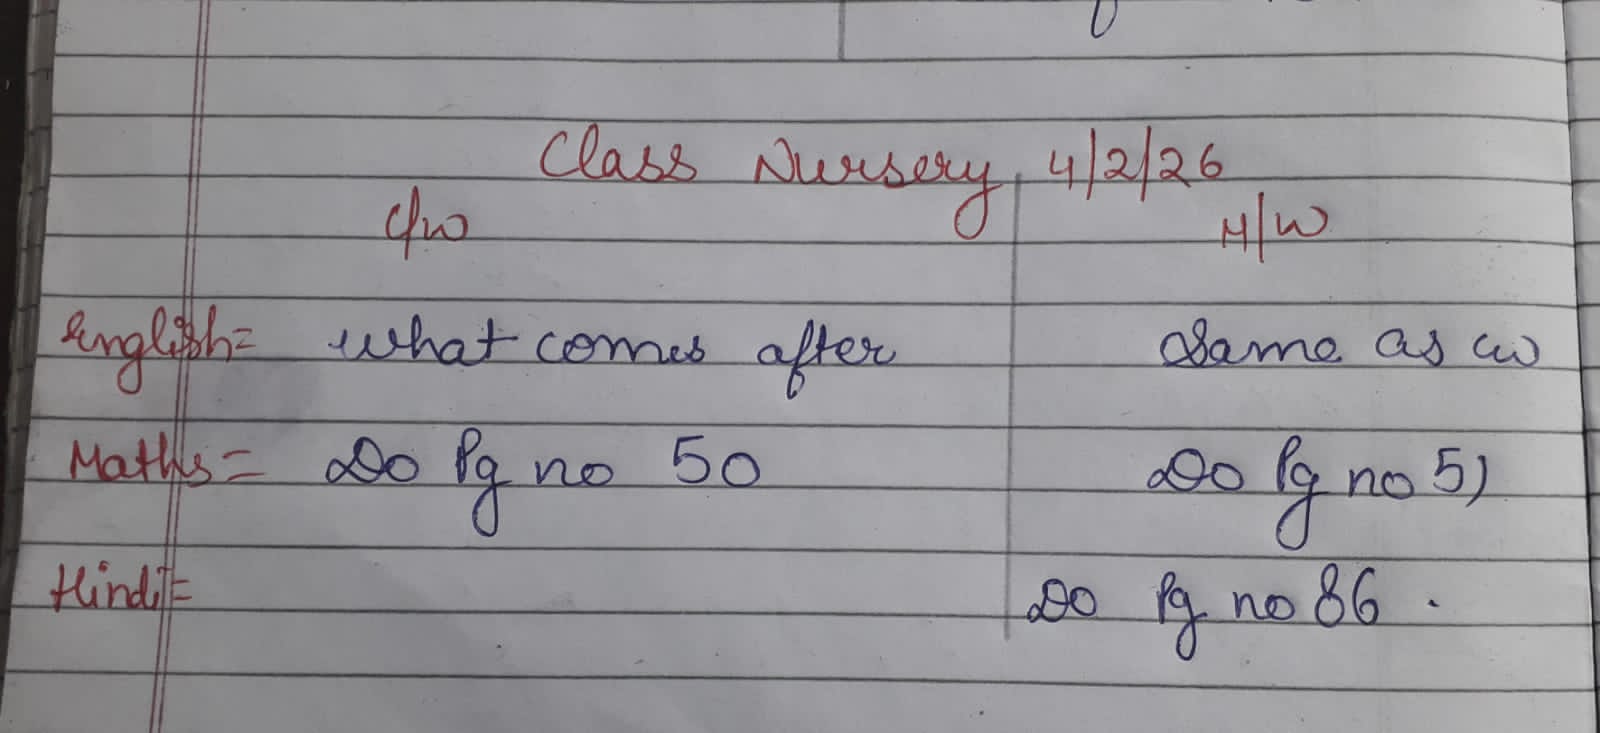 Class Nursery, 4/2/26
C/w H/W
English= what comes after Same as cw
Maths= Do Pg no 50 Do Pg no 51
Hindi= Do Pg no 86.